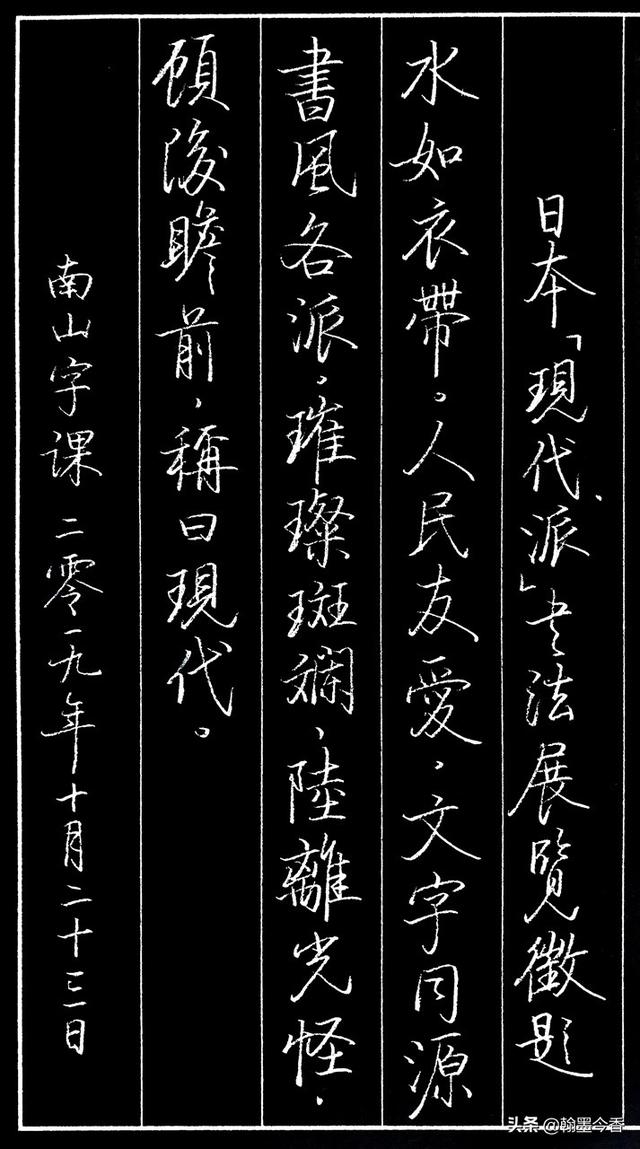 日本「現代派」书法展覽徵題
水如衣帶。人民友愛，文字同源
書風各派，璀璨斑斕，陸離光怪，
顧後瞻前，稱曰現代。
南山字课 二零一九年十月二十三日
头条@翰墨今香